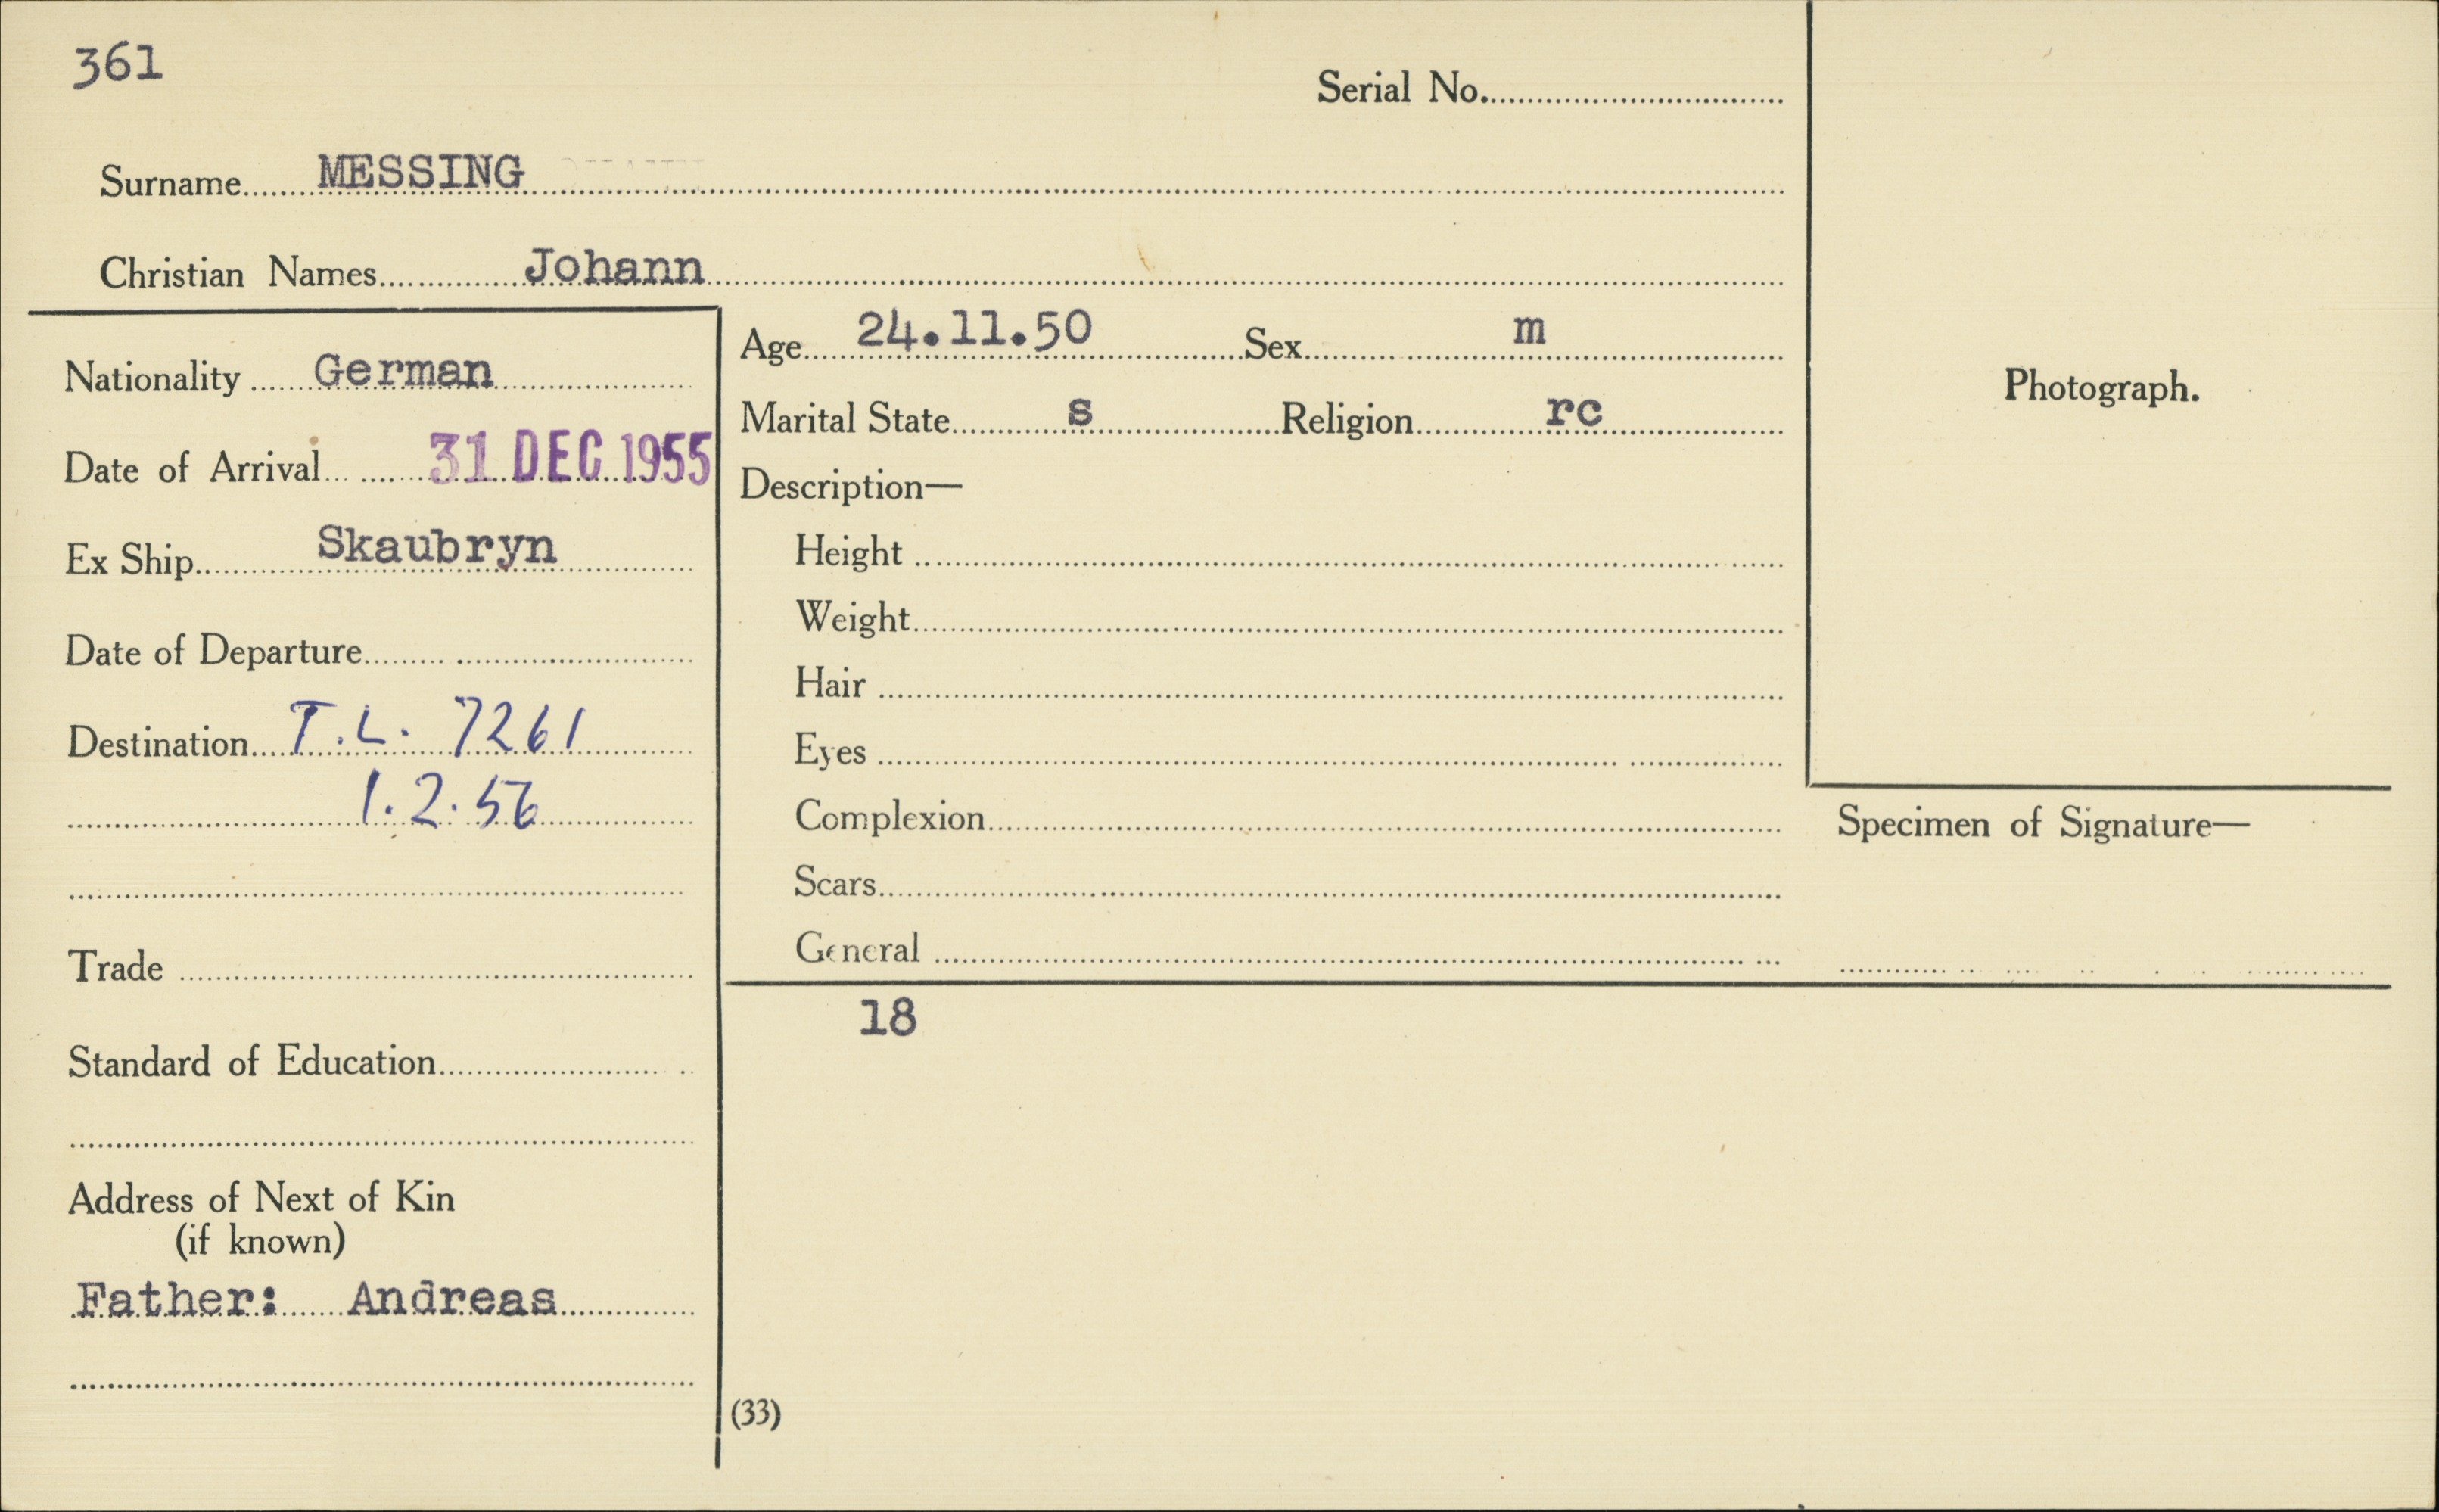 361
Serial No.
Surname MESSING
Christian Names Johann
Nationality German
Date of Arrival 31 DEC 1955
Ex Ship Skaubryn
Date of Departure
Destination T.L. 7261
1.2.56
Trade
Standard of Education
Address of Next of Kin
(if known)
Father: Andreas
Age 24.11.50 Sex m
Marital State s Religion rc
Description—
Height
Weight
Hair
Eyes
Complexion
Scars
General
18
(33)
Photograph.
Specimen of Signature—